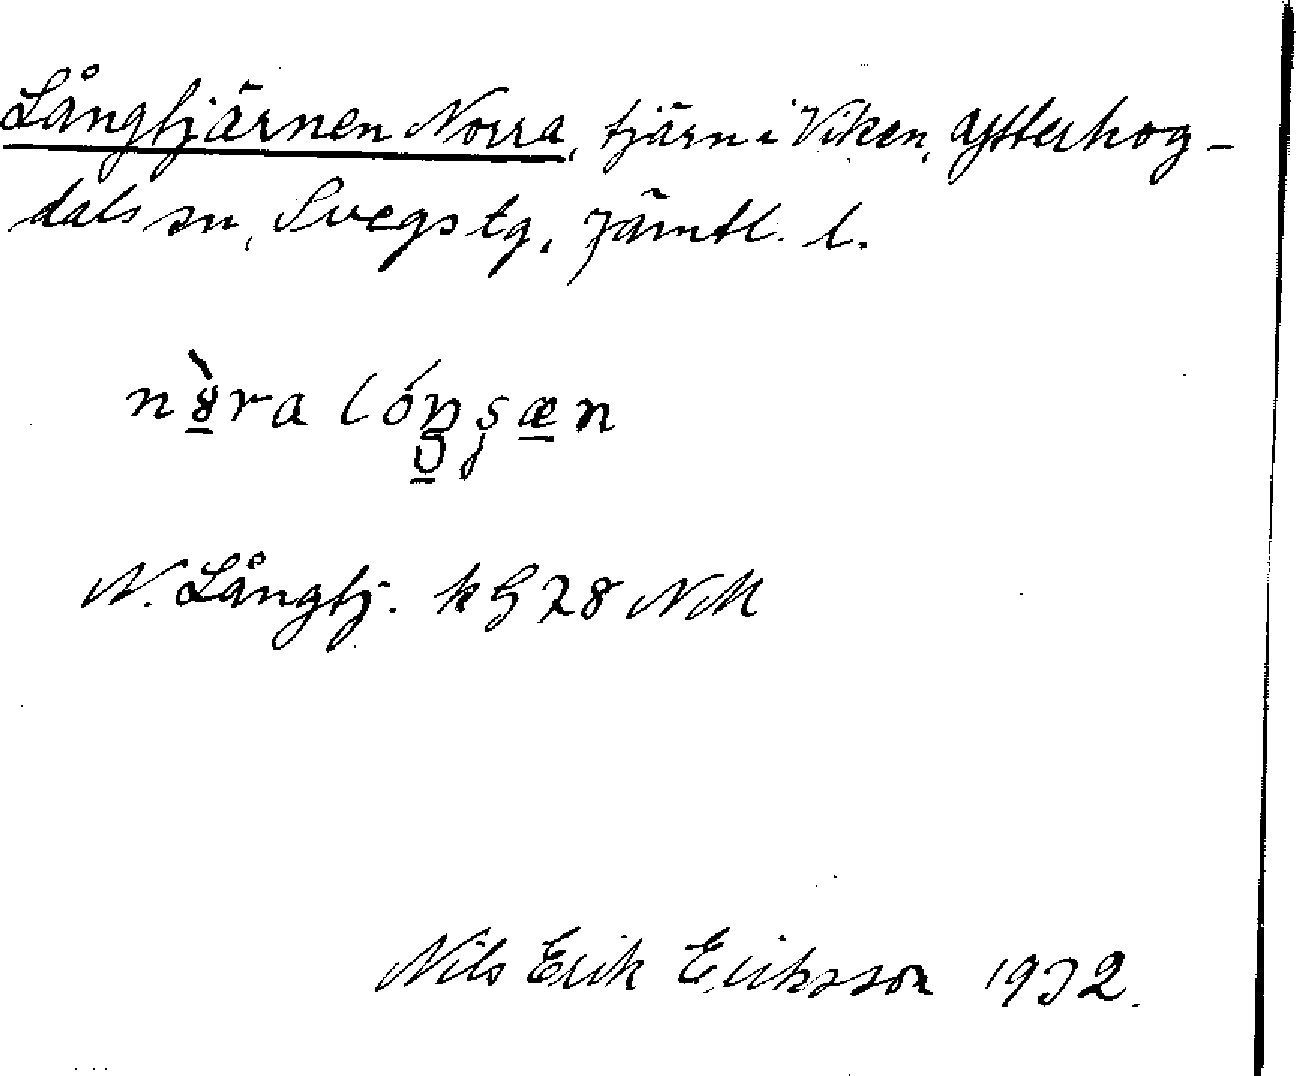 Långtjärnen Norra, tjärn i Viken, Ytterhog-
dals sn, Svegs tg, Jämtl. l.
nòra lóŋşæn
N. Långtj. k G 28 NM
Nils Erik Eriksson 1932.